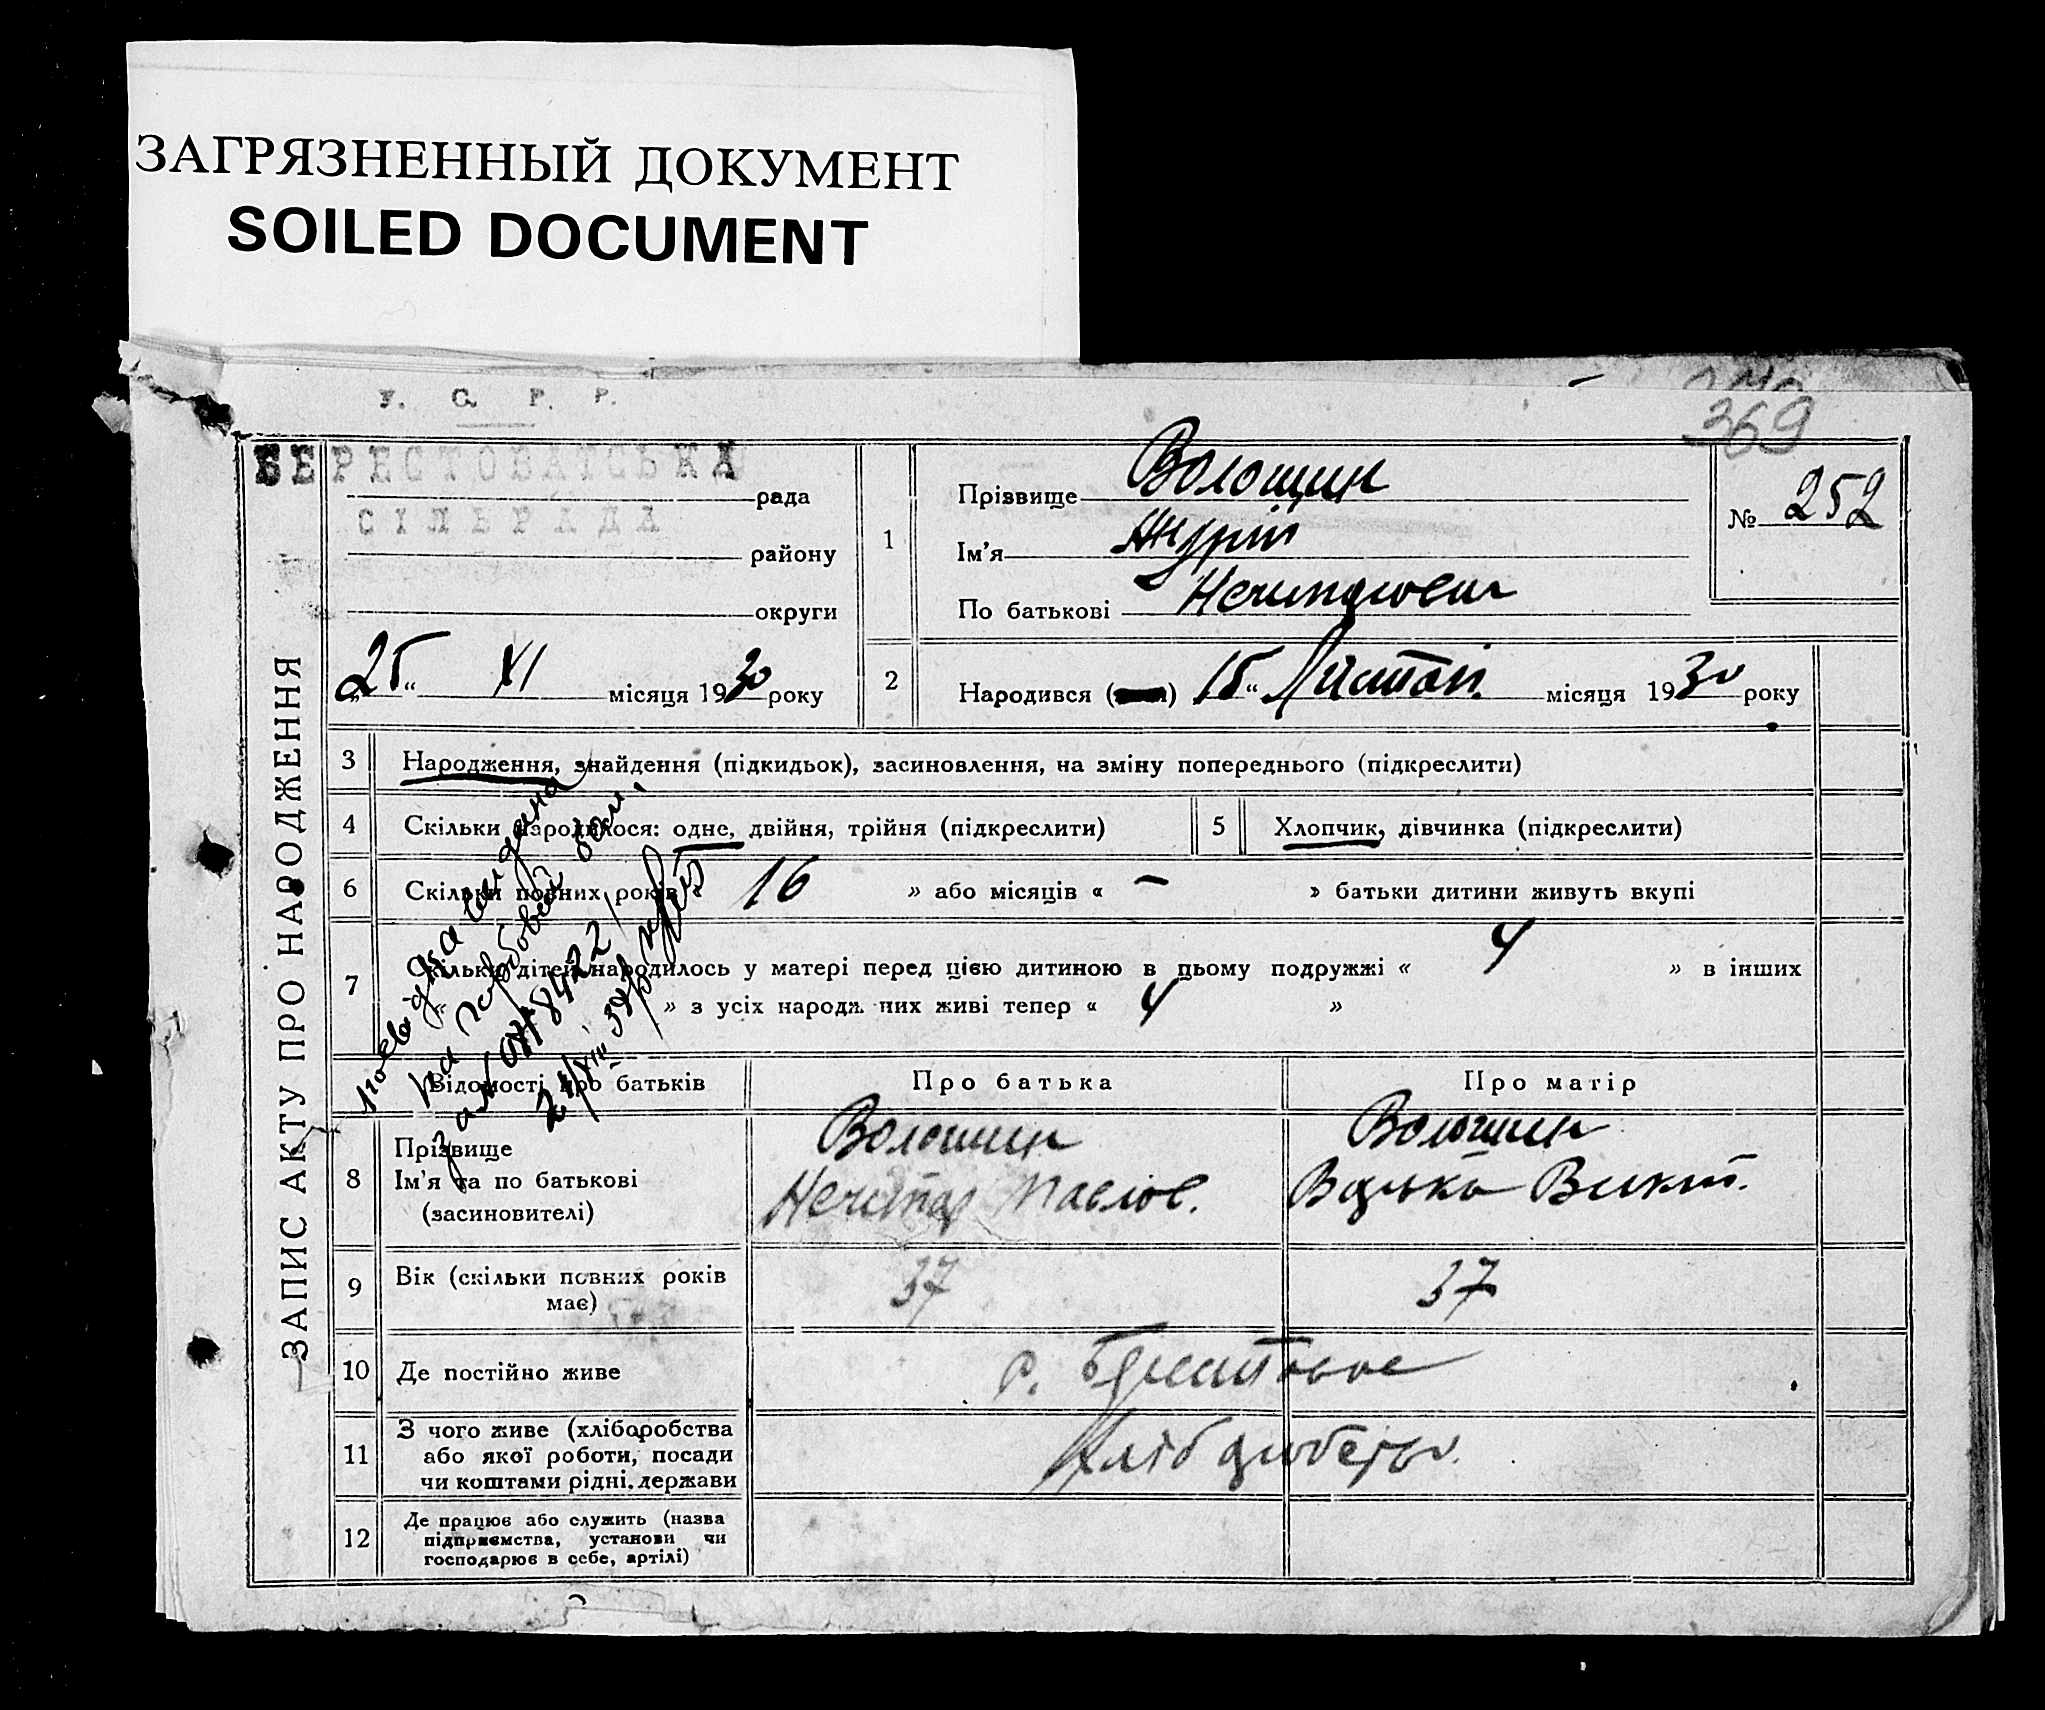 ЗАГРЯЗНЕННЫЙ ДОКУМЕНТ
SOILED DOCUMENT
У. С. Р. Р.
369
БЕРЕСТОВАТСЬКА
рада
СІЛЬРАДА
району
округи
„25“ XI місяця 1930 року
ЗАПИС АКТУ ПРО НАРОДЖЕННЯ
1
Прізвище Волощин
Ім'я Андрій
По батькові Нечипорович
№ 252
2 Народився ( ) 15 “ Листоп. місяця 1930 року
3 Народження, знайдення (підкидьок), засиновлення, на зміну попереднього (підкреслити)
4 Скільки народилося: одне, двійня, трійня (підкреслити)
5 Хлопчик, дівчинка (підкреслити)
6 Скільки повних років « 16 » або місяців « – » батьки дитини живуть вкупі
7 Скільки дітей народилось у матері перед цією дитиною в цьому подружжі « 4 » в інших
» з усіх народж них живі тепер « 4 »
видана
за № 048422
Відомості про батьків
Про батька
Про матір
8 Прізвище
Ім'я та по батькові
(засиновителі)
Волощин
Нечипор Павлов.
Волощин
Викт.
9 Вік (скільки повних років
має)
37
37
10 Де постійно живе
с. Берестове
11 З чого живе (хліборобства
або якої роботи, посади
чи коштами рідні, держави
Хлібороб
12 Де працює або служить (назва
підприємства, установи чи
господарює в себе, артілі)